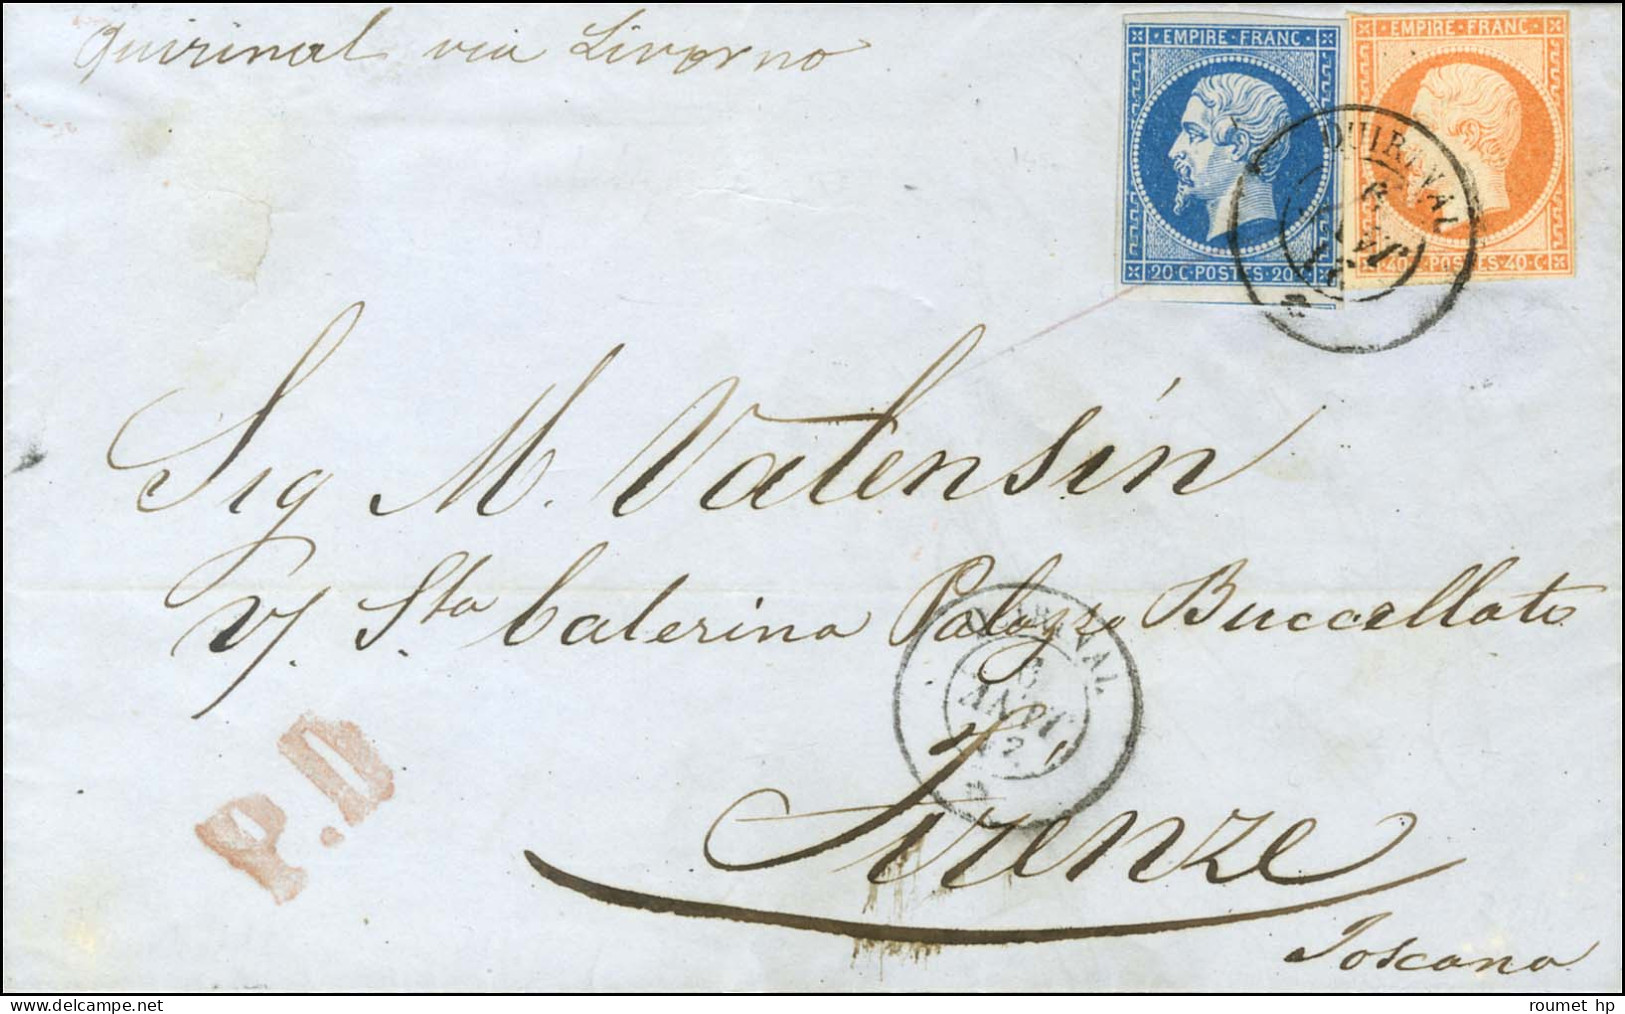 Quirinal via Livorno
EMPIRE FRANC
20 C POSTES 20 C
EMPIRE FRANC
40 C POSTES 40 C
QUIRINAL
6
JANV
Sig M. Valensin
V/ Sta Caterina Palazzo Buccellato
QUIRINAL
6
JANV
Firenze
P.D
Toscana
roumet hp